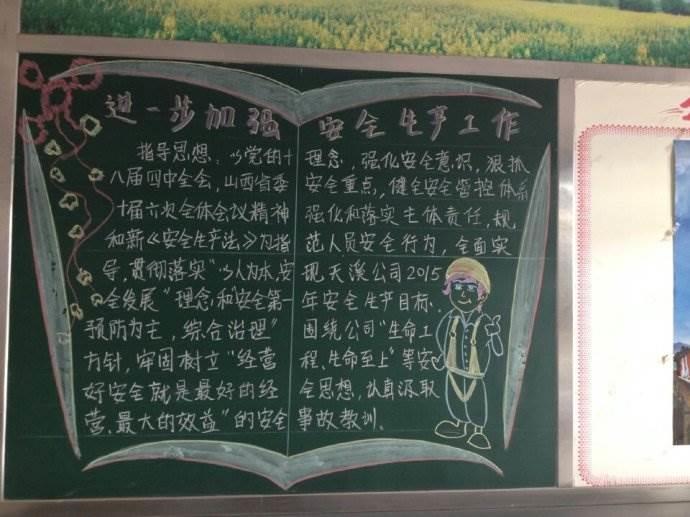 进一步加强 安全生产工作
指导思想：以党的十
八届四中全会，山西省委
十届六次全体会议精神
和新《安全生产法》为指
导，贯彻落实“以人为本，安
全发展”理念，和“安全第一
预防为主，综合治理”
方针，牢固树立“经营
好安全就是最好的经
营、最大的效益”的安全
理念，强化安全意识，狠抓
安全重点，健全安全管控体系
强化和落实主体责任，规
范人员安全行为，全面实
现天溪公司2015
年安全生产目标．
围绕公司“生命工
程、生命至上”等安
全思想，认真汲取
事故教训．